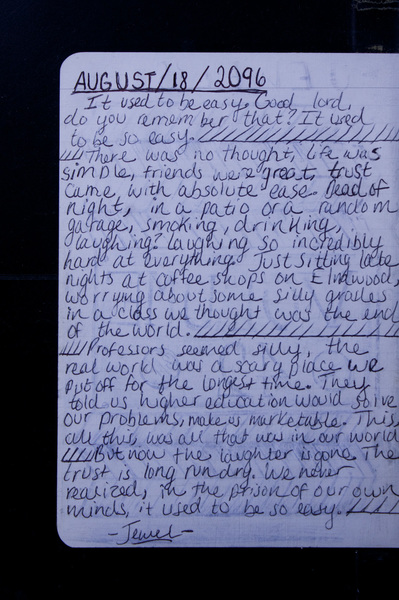 AUGUST/18/2096
It used to be easy. Good lord,
do you remember that? It used
to be so easy.
There was no thought, life was
simple, friends were great, trust
came, with absolute ease. Dead of
night, in a patio or a random
garage, smoking, drinking,
laughing? laughing so incredibly
hard at everything. Just sitting late
nights at coffee shops on Elmwood,
worrying about some silly grades
in a class we thought was the end
of the world.
Professors seemed silly, the
real world was a scary place we
put off for the longest time. They
told us higher education would solve
our problems, make us marketable. This,
all this, was all that was in our world
But now the laughter is gone. The
trust is long run dry. We never
realized, in the prison of our own
minds, it used to be so easy.
-Jewel-